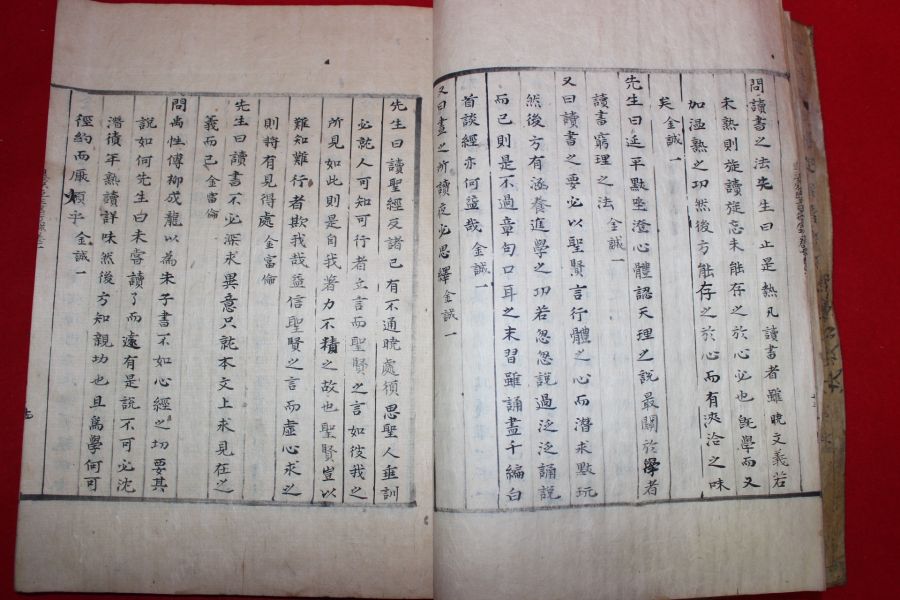 問讀書之法先生曰止是熟凡讀書者雖曉文義若
未熟則旋讀旋忘未能存之於心必也旣學而又
加溫熟之功然後方能存之於心而有浹洽之味
矣金誠一
先生曰延平默坐澄心體認天理之說最關於學者
讀書窮理之法 金誠一
又曰讀書之要必以聖賢言行體之心而潛求默玩
然後方有涵養進學之功若忽忽說過泛泛誦說
而已則是不過章句口耳之末習雖誦盡千編白
首談經亦何益哉金誠一
又曰晝之所讀夜必思繹金誠一
先生曰讀聖經反諸己有不通曉處須思聖人垂訓
必就人可知可行者立言而聖賢之言如彼我之
所見如此則是自我著力不精之故也聖賢豈以
難知難行者欺我哉益信聖賢之言而虛心求之
則將有見得處金富倫
先生曰讀書不必深求異意只就本文上求見在之
義而已金富倫
問禹性傳柳成龍以為朱子書不如心經之切要其
說如何先生曰未嘗讀了而遽有是說不可必沈
潛積年熟讀詳味然後方知親功也且為學何可
徑約而厭煩乎金誠一